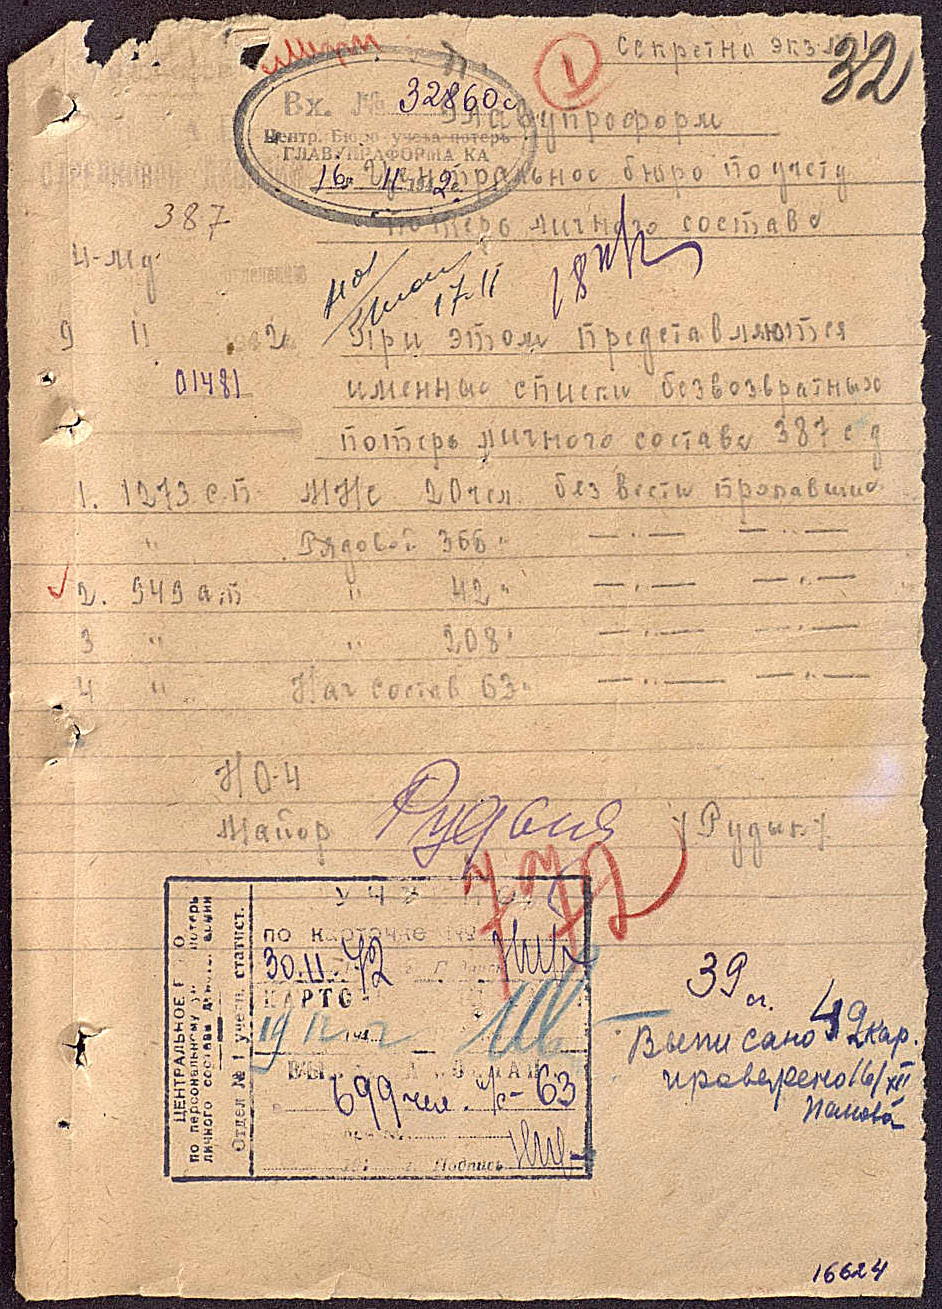 Секретно экз. №1
32
1
Вх. № 32860с
Центр. Бюро учета потерь
ГЛАВУПРАФОРМА КА
16 4 2
Главупроформ
Центральное бюро по учету
потерь личного состава
387
4-ый
17.11
9 11 2
01481
При этом представляются
именные списки безвозвратных
потерь личного состава 387 с д
1. 1273 с.п МНС 20 чел. без вести пропавших
" Рядовой 366 " — " — — " —
2. 949 а.п " 42 " — " — — " —
3 " " 208 " — " — — " —
4 " Нач состав 63 " — " — — " —
НО-4
Майор Рудыня /Рудын/
772
ЦЕНТРАЛЬНОЕ Б О
по персональному потерь
личного состава действ. армии
Отдел № 1 учетн. статист.
по карточке №
30.11.42
КАРТО
19 12
699 чел. н/с - 63
Подпись
39 сг.
Выписано 49 кар.
проверено 16/XII
16624